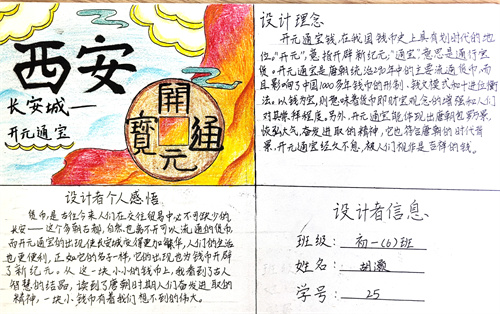 西安
长安城——
开元通宝
開
通
元
寶
设计理念
开元通宝钱,在我国钱币史上具有划时代的地
位。"开元",意指开辟新纪元,"通宝"意思是通行宝
货。开元通宝是唐朝统治290年中的主要流通货币,而
且影响了中国1000多年钱币的形制、钱文模式和十进位衡
法。以钱为宝,则意味着货币即财宝观念的增强和人们
对其崇拜程度。另外,开元通宝能体现出唐朝包罗万象,
恢弘大气,奋发进取的精神,它也符合唐朝的时代背
景,开元通宝经久不息,被人们视作是吉祥的钱。
设计者个人感悟
货币,是古往今来人们在交往贸易中必不可缺少的,
长安——这个多朝古都,自然也离不开可以流通的货币,
而开元通宝的出现使长安城变得更加繁华,人们的生活
也更便利,正如它的名字一样,它的出现也为钱币开辟
了新纪元。从这一块小小的钱币上,我看到了古人
智慧的结晶,读到了唐朝时期人们奋发进取的
精神,一块小钱币有着我们想不到的伟大。
设计者信息
班级:初一(6)班
姓名:胡灏
学号:25